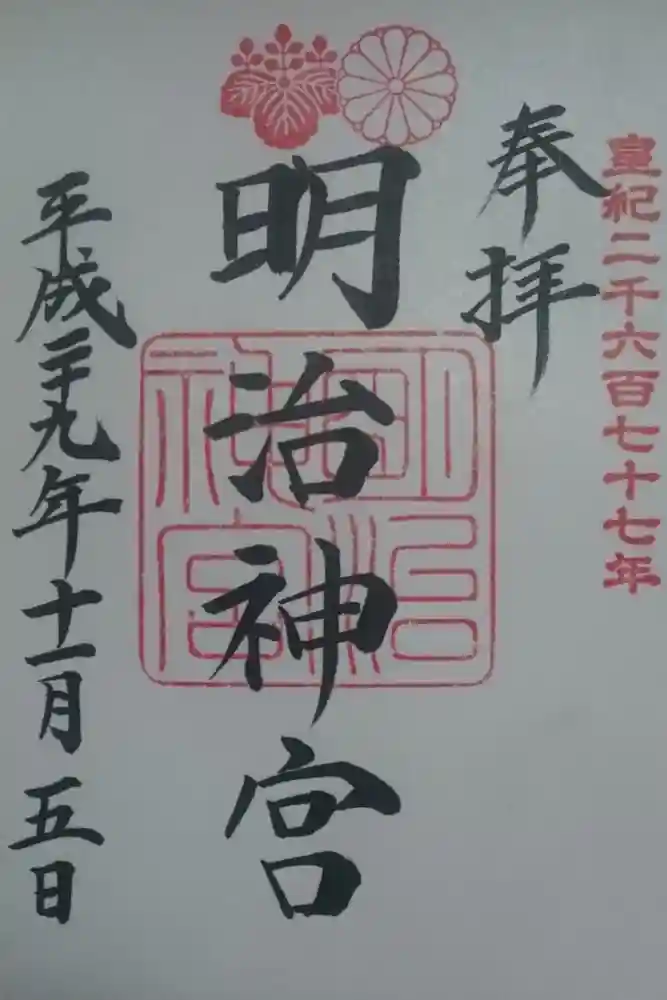 皇紀二千六百七十七年
奉拝
明治神宮
明治神宮
平成二十九年十一月五日